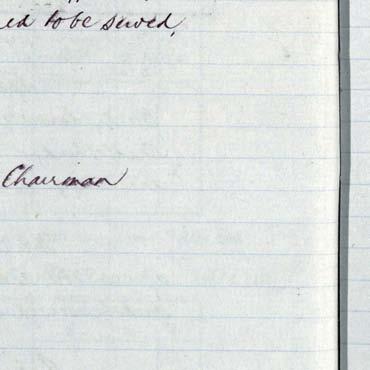 ed to be served,
Chairman